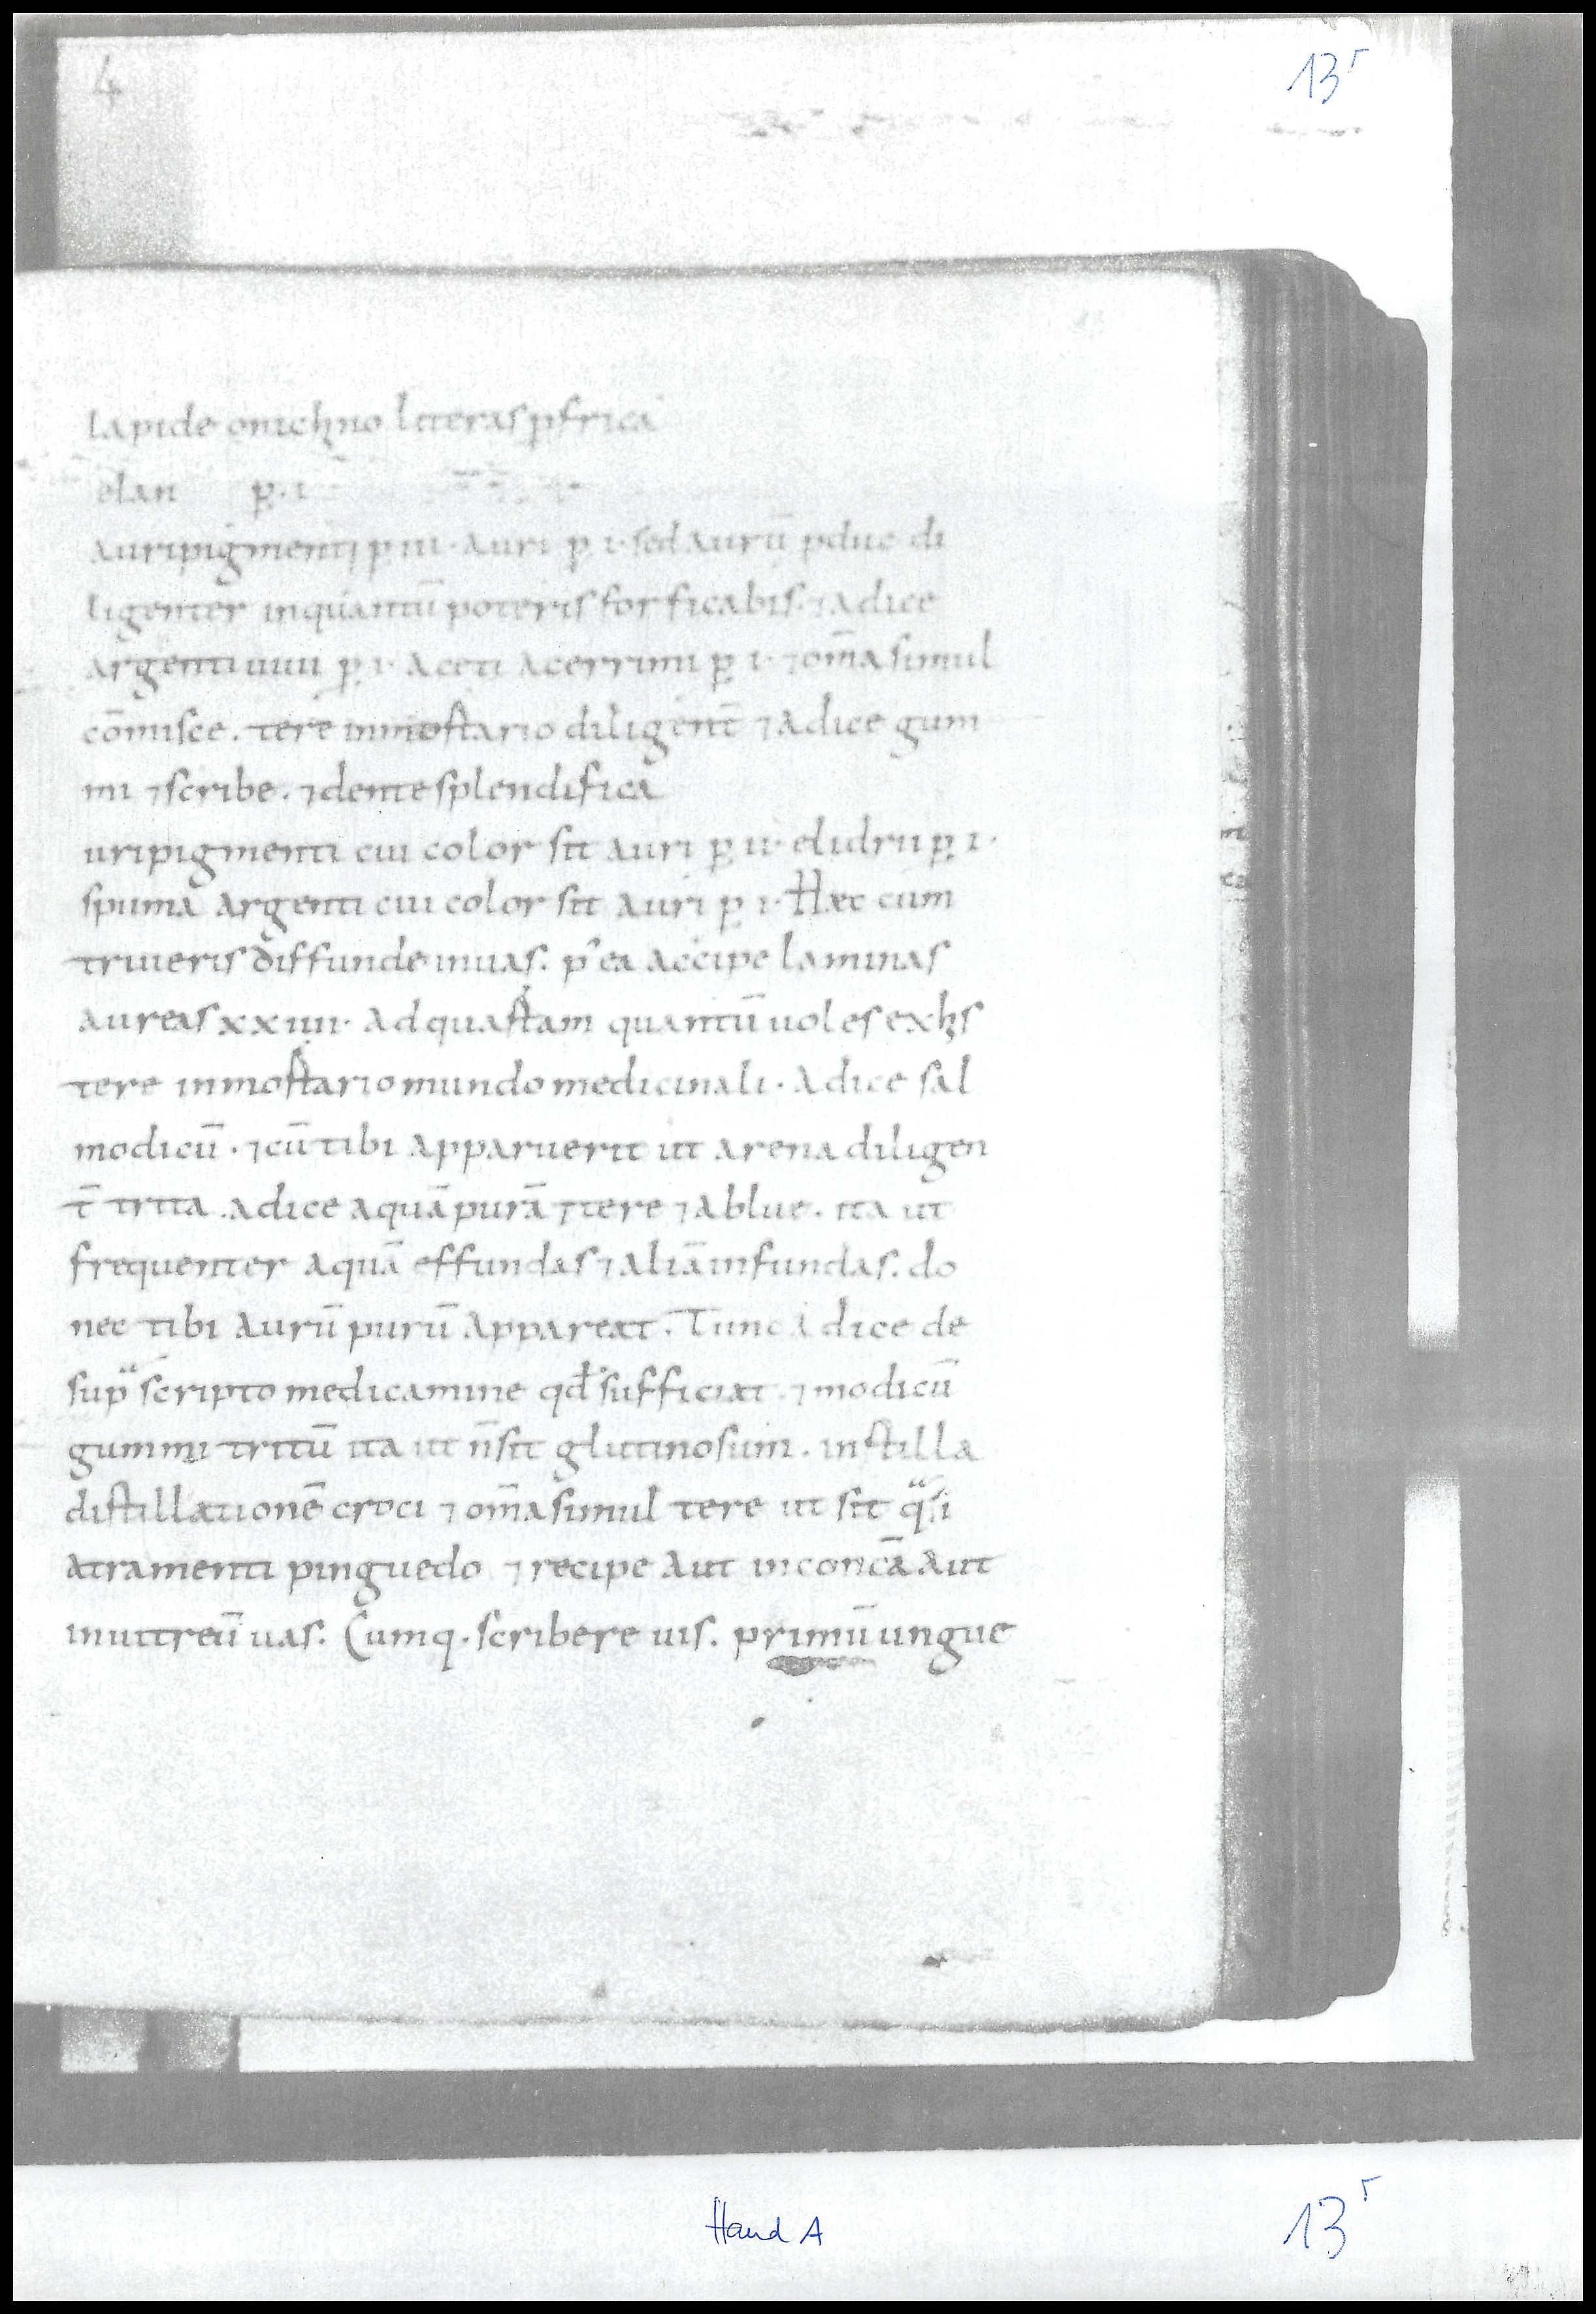 4
13ʳ
lapide onichino literas ꝑfrica
elan p̱.ı
auripigmenti p̱ ııı· auri p̱ ı· sed aurū ꝓduc di
ligenter inquantū poteris forficabis. ⁊adice
argenti uiui p̱ ı· aceti acerrimi p̱ ı· ⁊om̄a simul
cōmisce. tere inmortario diligent̄ ⁊adice gum
mi ⁊scribe. ⁊dente splendifica
uripigmenti cui color sit auri p̱ ıı· elidrii p̱ ı·
spuma argenti cui color sit auri p̱ ı· Haec cum
triueris diffunde inuas. p̄ea accipe laminas
aureas xxıııı· adquastam quantū uoles exhis
tere inmortario mundo medicinali· adice sal
modicū· ⁊cū tibi apparuerit ut arena diligen
t̄ trita .adice aquā purā ⁊tere ⁊ablue. ita ut
frequenter aquā effundas ⁊aliā infundas. do
nec tibi aurū purū appareat. Tunc adice de
sup̱ͣscripto medicamine qđ sufficiat. ⁊modicū
gummi tritū ita ut n̄ sit glutinosum. instilla
distillationē croci ⁊ om̄a simul tere ut sit qͣsi
atramenti pinguedo ⁊recipe aut inconcā aut
inuitreū uas. Cumq· scribere uis. primū ungue
Hand A
13ʳ